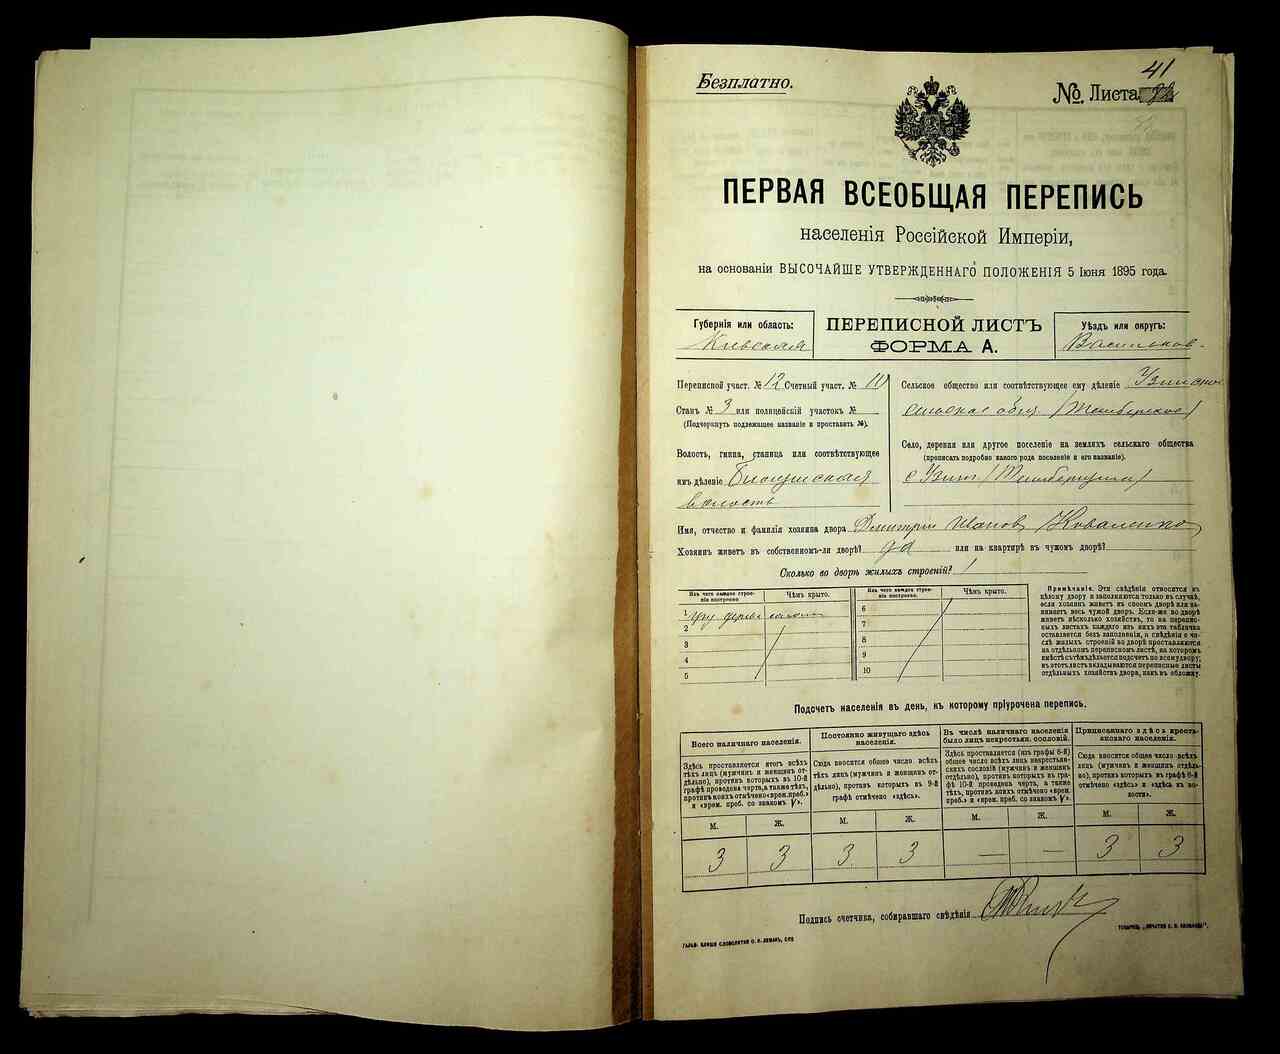 41
Безплатно.
№ Листа
ПЕРВАЯ ВСЕОБЩАЯ ПЕРЕПИСЬ
населенія Россійской Имперіи,
на основаніи ВЫСОЧАЙШЕ УТВЕРЖДЕННАГО ПОЛОЖЕНІЯ 5 Іюня 1895 года.
Губернія или область:
Кіевская
ПЕРЕПИСНОЙ ЛИСТЪ
ФОРМА А.
Уѣздъ или округъ:
Васильков.
Переписной участ. № 12 Счетный участ. №
Станъ № 3 или полицейскій участокъ №
(Подчеркнуть подлежащее названіе и проставить №).
Волость, гмина, станица или соотвѣтствующее
имъ дѣленіе
волость
Сельское общество или соотвѣтствующее ему дѣленіе
сельское общ.
Село, деревня или другое поселеніе на земляхъ сельскаго общества
(прописать подробно какого рода поселеніе и его названіе).
с Узин
Имя, отчество и фамилія хозяина двора Дмитрій Иванов Коваленко
Хозяинъ живетъ въ собственномъ-ли дворѣ? да или на квартирѣ въ чужомъ дворѣ?
Сколько во дворѣ жилыхъ строеній? 1
Изъ чего каждое строеніе построено.
Чѣмъ крыто.
Изъ чего каждое строеніе построено.
Чѣмъ крыто.
1
2
3
4
5
6
7
8
9
10
Примѣчаніе. Эти свѣдѣнія относятся къ
цѣлому двору и заполняются только въ случаѣ,
если хозяинъ живетъ въ своемъ дворѣ или на-
нимаетъ весь чужой дворъ. Если-же во дворѣ
живетъ нѣсколько хозяйствъ, то на перепис-
ныхъ листахъ каждаго изъ нихъ эта табличка
оставляется безъ заполненія, а свѣдѣнія о чис-
лѣ жилыхъ строеній во дворѣ проставляются
на отдѣльномъ переписномъ листѣ, на которомъ
вмѣстѣ съ тѣмъ дѣлается подсчетъ по всему двору;
въ этотъ листъ вкладываются переписные листы
отдѣльныхъ хозяйствъ двора, какъ въ обложку.
Подсчетъ населенія въ день, къ которому пріурочена перепись.
Всего наличнаго населенія.
Здѣсь проставляется итогъ всѣхъ
тѣхъ лицъ (мужчинъ и женщинъ от-
дѣльно), противъ которыхъ въ 10-й
графѣ проведена черта, а также тѣхъ,
противъ коихъ отмѣчено «врем. преб.»
и «врем. преб. со знакомъ V».
Постоянно живущаго здѣсь
населенія.
Сюда вносится общее число всѣхъ
тѣхъ лицъ (мужчинъ и женщинъ от-
дѣльно), противъ которыхъ въ 9-й
графѣ отмѣчено «здѣсь».
Въ числѣ наличнаго населенія
было лицъ некрестьян. сословій.
Здѣсь проставляется (изъ графы 8-й)
общее число всѣхъ лицъ некрестьян-
скихъ сословій (мужчинъ и женщинъ
отдѣльно), противъ которыхъ въ гра-
фѣ 10-й проведена черта, а также
тѣхъ, противъ коихъ отмѣчено «врем.
преб.» и «врем. преб. со знакомъ V».
Приписаннаго здѣсь кресть-
янскаго населенія.
Сюда вносится общее число всѣхъ
лицъ (мужчинъ и женщинъ отдѣль-
но), противъ которыхъ въ графѣ 8-й
отмѣчено «здѣсь» и «здѣсь въ во-
лости».
М. Ж. М. Ж. М. Ж. М. Ж.
3 3 3 3 — — 3 3
Подпись счетчика, собиравшаго свѣдѣнія